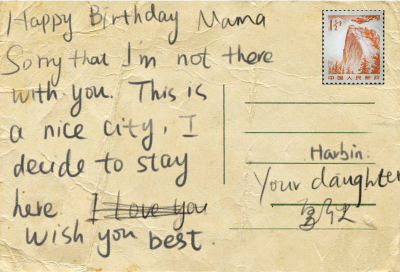 Happy Birthday Mama
Sorry that I'm not there
with you. This is
a nice city, I
decide to stay
here. I love you
wish you best.
中国人民邮政
Harbin.
Your daughter